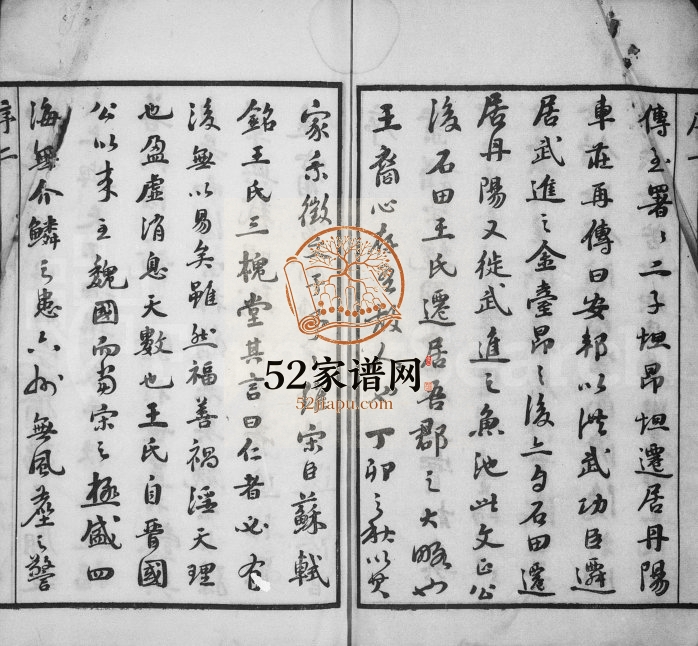 傳至署〻二子坦昂坦遷居丹陽
車莊再傳曰安邦以洪武功臣遷
居武進之金臺昂之後上與石田遷
居丹陽又徙武進之魚池此文正公
後石田王氏遷居吾郡之大略也
王裔心 故人也丁卯之秋以其
序一
家乘徵 宋臣蘇軾
銘王氏三槐堂其言曰仁者必有
後無以易矣雖然福善禍淫天理
也盈虛消息天數也王氏自晉國
公以來至魏國而當宋之極盛四
海無介鱗之患六州無風塵之警
序二
52家谱网
52jiapu.com